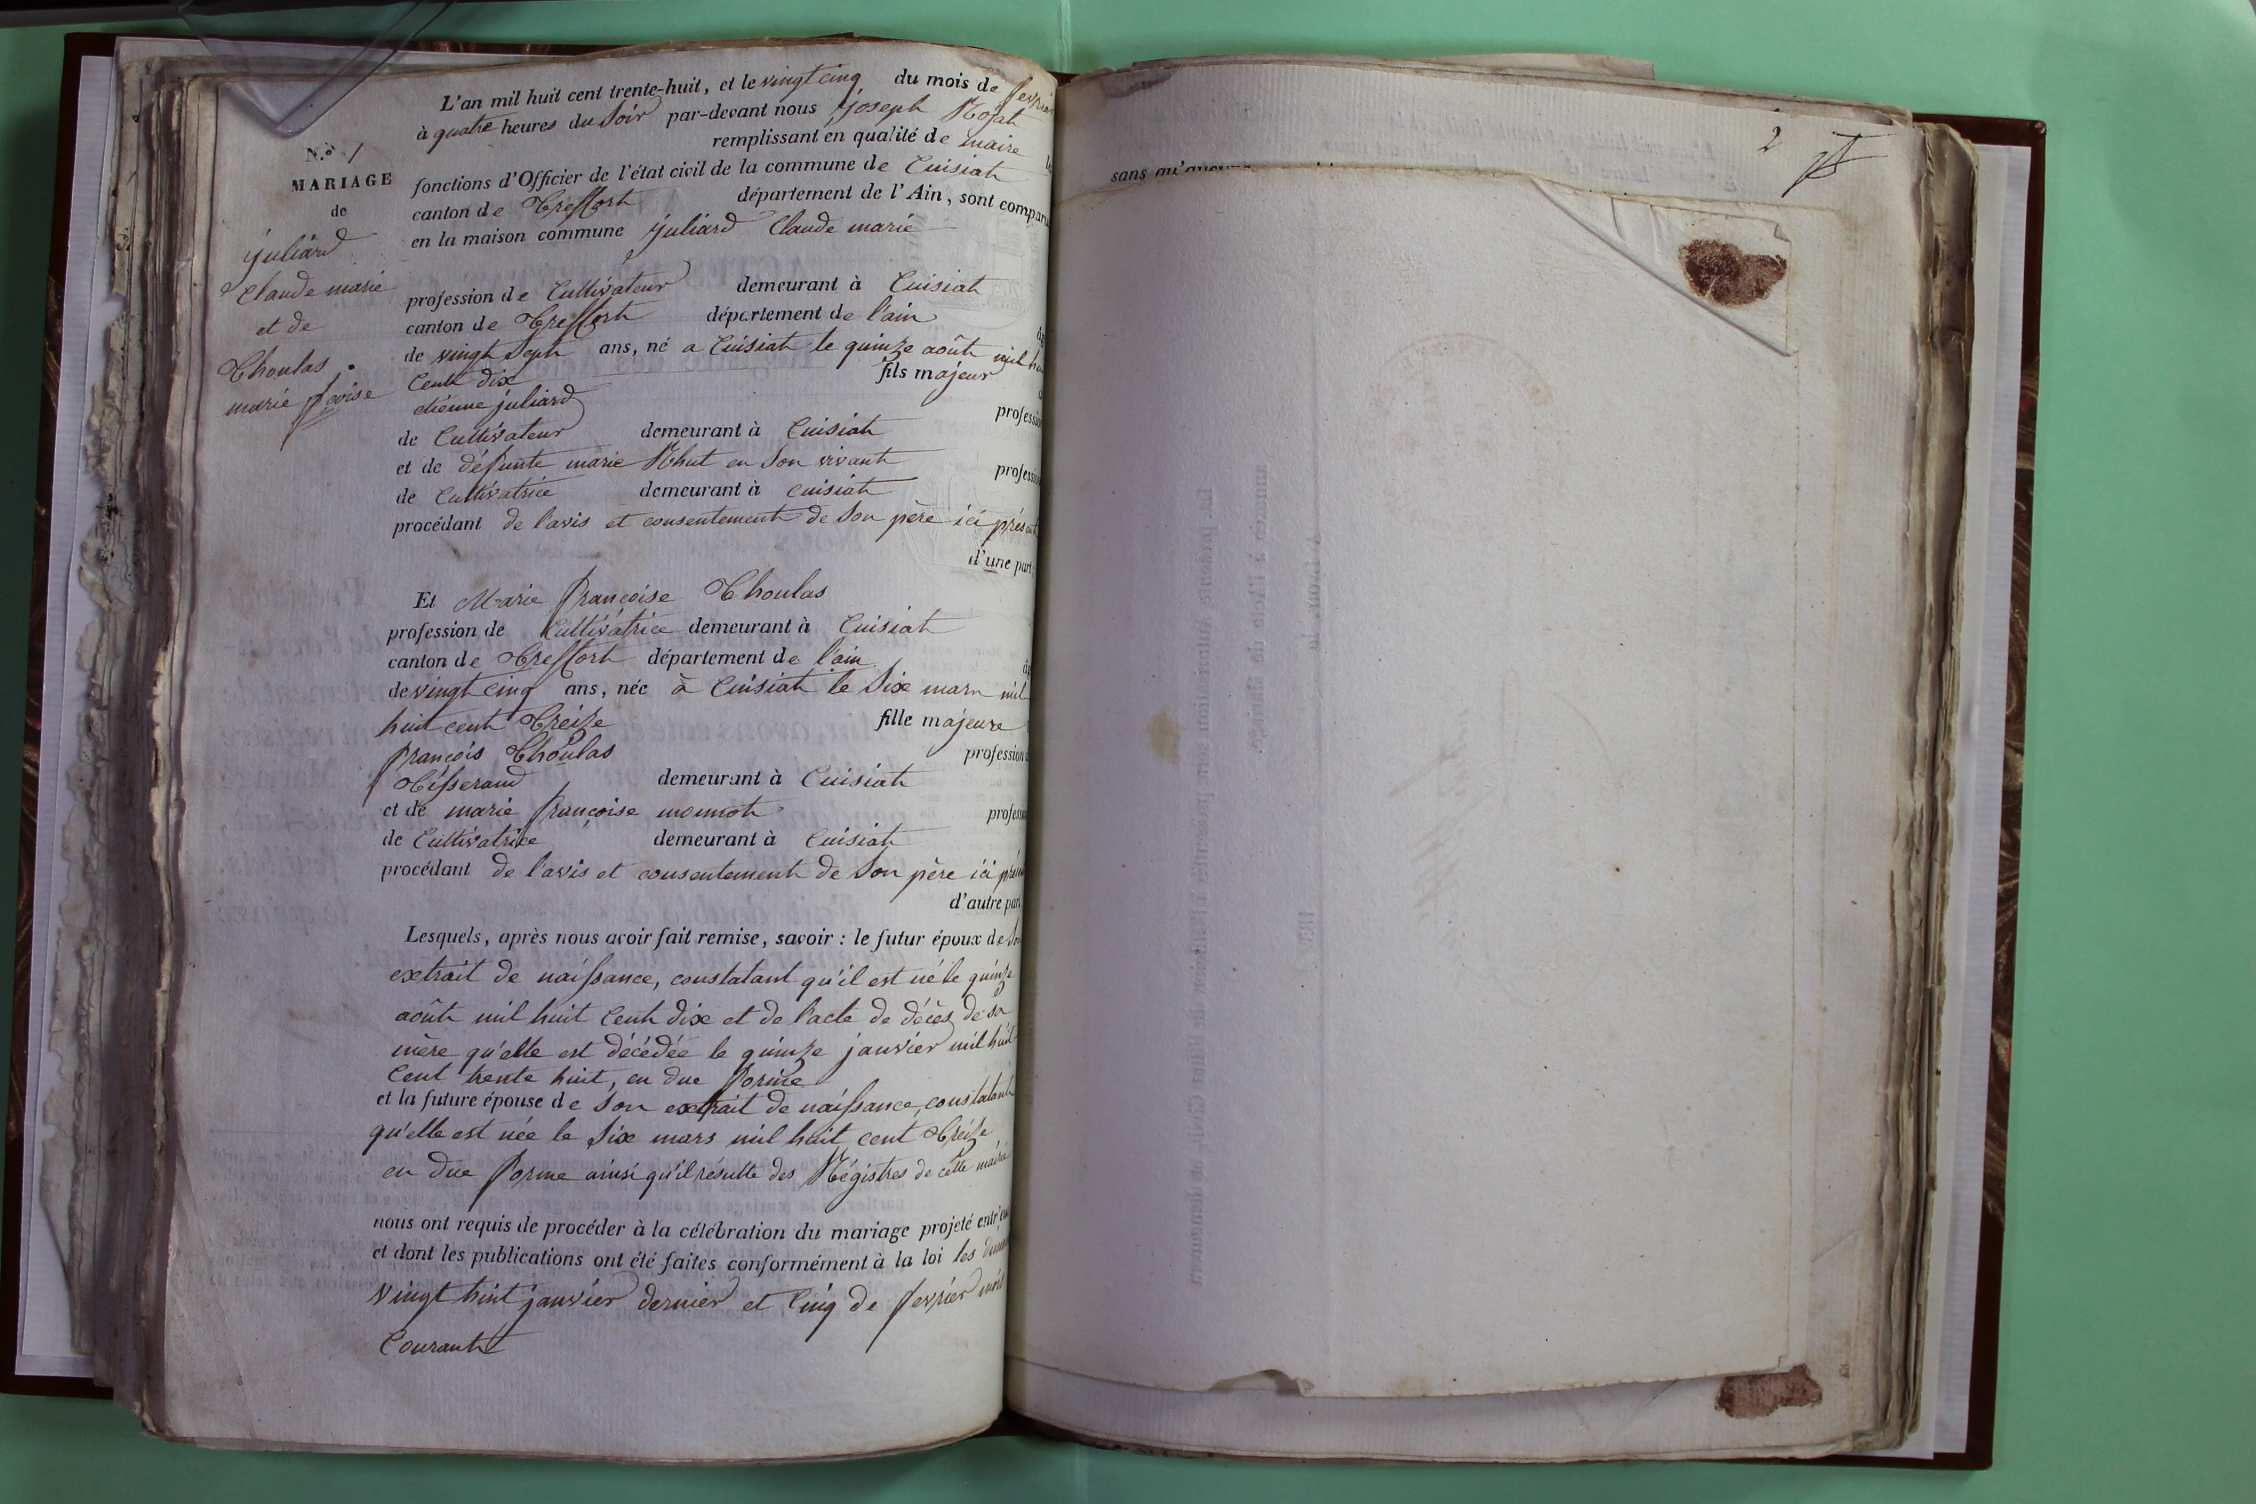 N.º 1
MARIAGE
de
juliard
Claude marie
et de
Choulas
marie f.çoise
L'an mil huit cent trente-huit, et le vingt cinq du mois de fevrier
à quatre heures du Soir par-devant nous joseph
remplissant en qualité de maire
fonctions d'Officier de l'état civil de la commune de Cuisiat
canton de Treffort département de l'Ain, sont comparu
en la maison commune juliard Claude marie
profession de Cultivateur demeurant à Cuisiat
canton de Treffort département de l'ain
de vingt Sept ans, né a Cuisiat le quinze août mil hui
Cent dix fils majeur
etienne juliard profession
de Cultivateur demeurant à Cuisiat
et de défunte marie en Son vivant profession
de Cultivatrice demeurant à Cuisiat
procédant de l'avis et consentement de Son père ici présent
d'une part
Et Marie françoise Choulas
profession de Cultivatrice demeurant à Cuisiat
canton de Treffort département de l'ain
de vingt cinq ans, née à Cuisiat le Six mars mil
huit cent Treize fille majeure
françois Choulas profession
Tisserand demeurant à Cuisiat
et de marie françoise profession
de Cultivatrice demeurant à Cuisiat
procédant de l'avis et consentement de Son père ici présent
d'autre part
Lesquels, après nous avoir fait remise, savoir : le futur époux de Son
extrait de naissance, constatant qu'il est né le quinze
août mil huit Cent dix et de l'acte de décès de sa
mère qu'elle est décédée le quinze janvier mil huit
Cent trente huit, en due forme
et la future épouse de Son extrait de naissance, constatant
qu'elle est née le Six mars mil huit cent Treize
en due forme ainsi qu'il résulte des Régistres de cette mairie
nous ont requis de procéder à la célébration du mariage projeté entr'eux
et dont les publications ont été faites conformément à la loi les
vingt huit janvier dernier et Cinq de fevrier mois
Courant
2
sans qu'aucune